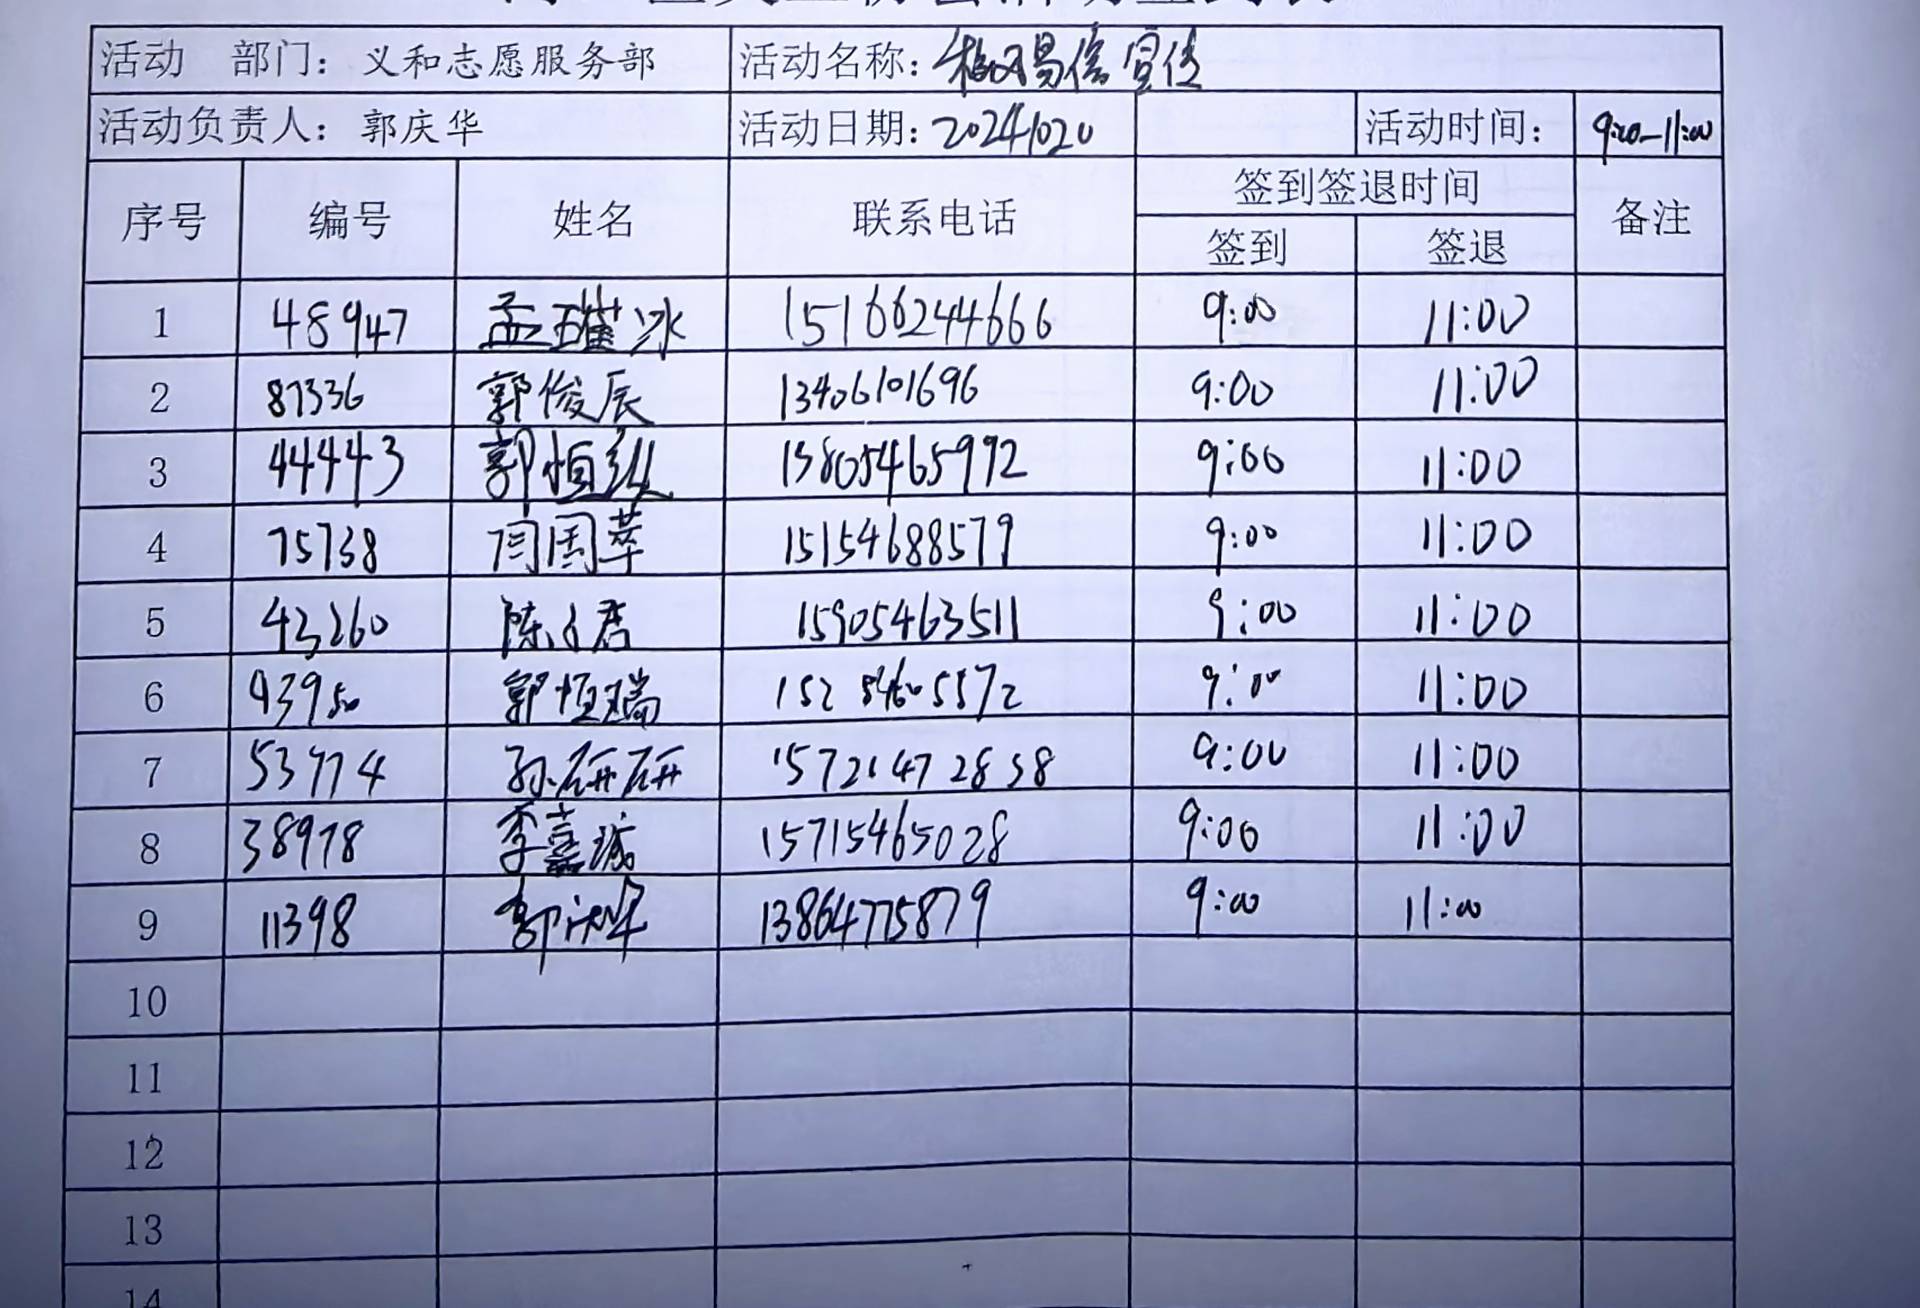 活动 部门：义和志愿服务部 活动名称：
活动负责人：郭庆华 活动日期：20241020 活动时间：9:00-11:00
序号 编号 姓名 联系电话 签到签退时间 备注
签到 签退
1 48947 孟 冰 15166244666 9:00 11:00
2 87336 郭俊辰 13406101696 9:00 11:00
3 44443 郭恒 15805465992 9:00 11:00
4 75738 闫国苹 15154688579 9:00 11:00
5 43260 陈子君 15905463511 9:00 11:00
6 43950 郭恒瑞 9:00 11:00
7 53774 孙研研 9:00 11:00
8 38978 李嘉诚 15715465028 9:00 11:00
9 11398 郭庆华 13864775879 9:00 11:00
10
11
12
13
14